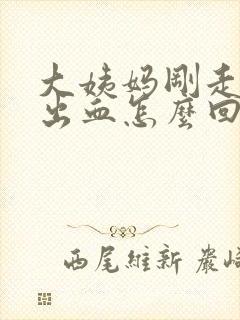 大姨妈刚走
出血怎麽回
西尾維新 嚴